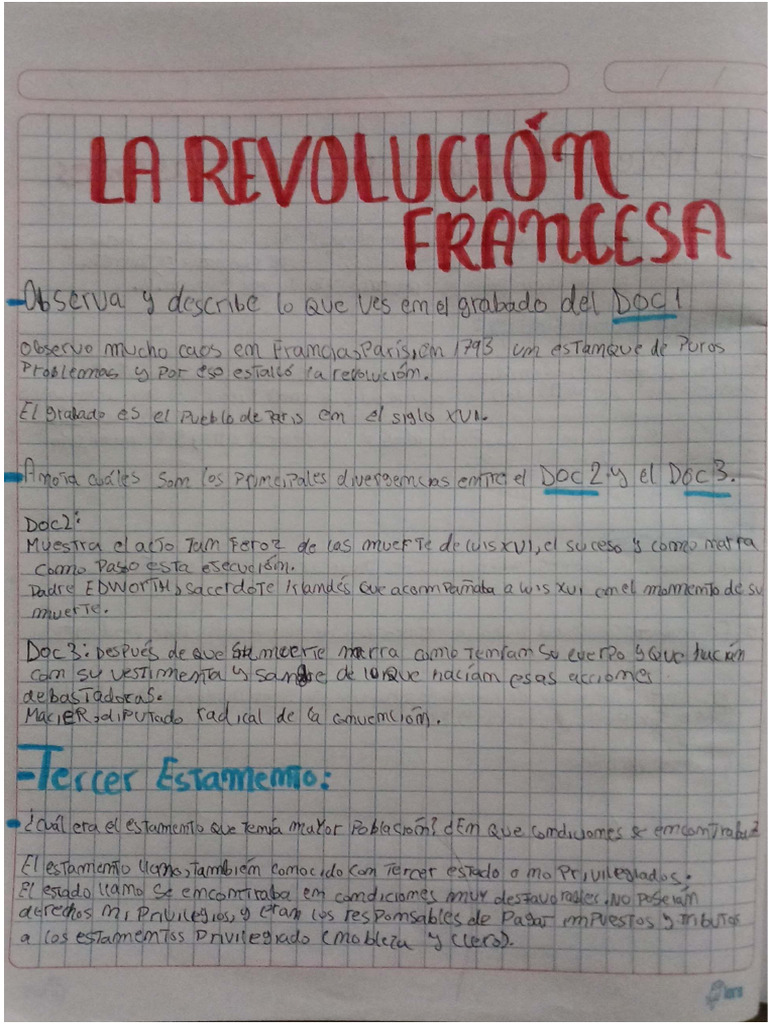 LA REVOLUCIÓN
FRANCESA
-Observa y describe lo que ves en el grabado del DOC1
Observo mucho caos en Francia, París, en 1793 un estanque de Puros
Problemas y por eso estalló la revolución.
El grabado es el pueblo de París en el siglo XVI.
-Anota cuáles son los principales divergencias entre el DOC2 y el DOC3.
Doc2:
Muestra el acto tan feroz de las muerte de Luis XVI, el suceso y como narra
como paso esta esecución.
Padre EDWORTH, sacerdote islandés que acompañaba a Luis XVI en el momento de su
muerte.
Doc3: Después de que su muerte narra como tenían su cuerpo y que hacían
con su vestimenta y sangre de lo que hacían esas acciones
debastadoras.
MaciER, diputado radical de la convención.
-Tercer Estamento:
• ¿Cuál era el estamento que tenía mayor población? ¿En que condiciones se encontraba?
El estamento llano, también conocido con Tercer estado o no privilegiados.
El estado llano se encontraba en condiciones muy desfavorables. No poseían
derechos ni privilegios, y eran los responsables de pagar impuestos y tributos
a los estamentos privilegiado (nobleza y clero).